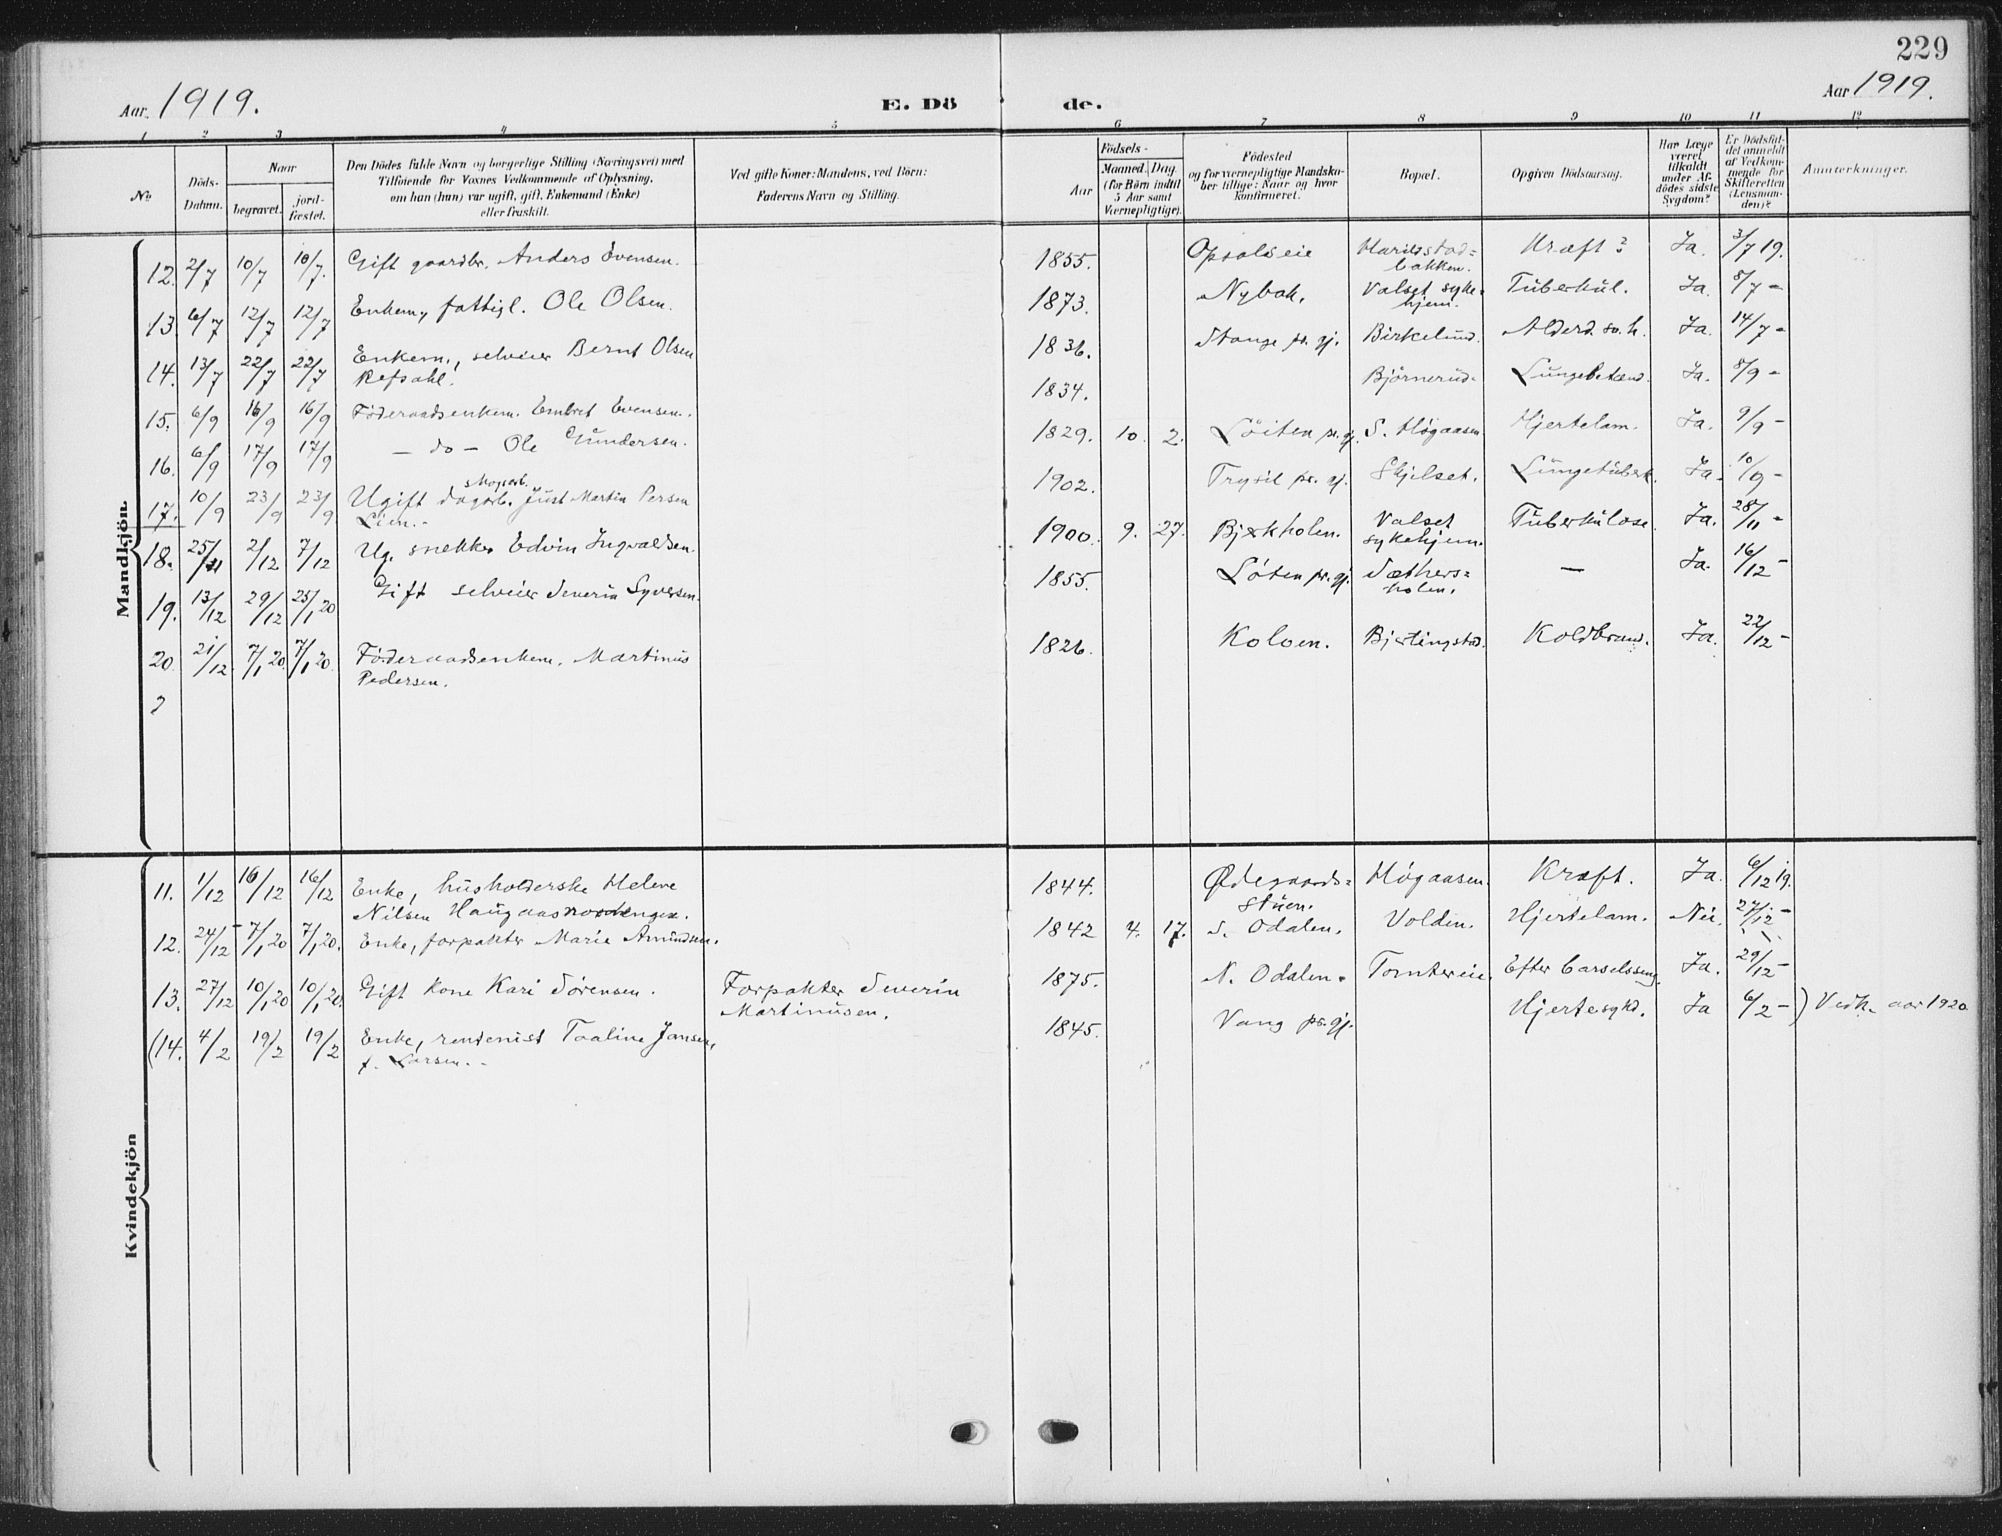 229
Aar 1919.
E. Dö de.
Aar 1919.
1 2 3 4 5 6 7 8 9 10 11 12
No.
Döds-Datum.
Naar
begravet.
jord-fæstet.
Den Dödes fulde Navn og borgerlige Stilling (Næringsvei) med
Tilföiende for Voxnes Vedkommende af Oplysning,
om han (hun) var ugift, gift, Enkemand (Enke)
eller fraskilt.
Ved gifte Koner: Mandens, ved Börn:
Faderens Navn og Stilling.
Aar
Födsels-
Maaned. Dag.
(for Börn indtil
5 Aar samt
Værnepligtige).
Födested
og for værnepligtige Mandska-
ber tillige: Naar og hvor
konfirmeret.
Bopæl.
Opgiven Dödsaarsag.
Har Læge
været
tilkaldt
under Af-
dödes sidste
Sygdom?
Er Dödsfal-
det anmeldt
af Vedkom-
mende for
Skifteretten
(Lensman-
den)?
Anmerkninger.
Mandkjön.
12. 2/7 10/7 10/7. Gift gaardbr. Anders Evensen. 1855. Opsalseie Harildstad=bakken. Kræft? Ja. 3/7 19.
13. 6/7 12/7 12/7 Enkem, fattigl. Ole Olsen. 1873. Nybak. Valset syke=hjem. Tuberkul. Ja. 8/7 -
14. 13/7 22/7 22/7 Enkem., selveier Bernt Olsen
Refsahl. 1836. Stange pr. gj. Birkelund. Alderd. sv. h. Ja. 14/7 -
15. 6/9 16/9 16/9 Föderaadsenkem. Embret Evensen. 1834. Björnerud. Lungebetænd. Ja. 8/9 -
16. 6/9 17/9 17/9 - do - Ole Gundersen. 1829. 10. 2. Löiten pr. gj. S. Högaasen Hjertelam. Ja. 9/9 -
17. 10/9 23/9 23/9 Ugift dagarb. Just Martin Persen
Lien. 1902. Trysil pr. gj. Skjelset. Lungetuberk. Ja. 10/9 -
18. 25/11 2/12 7/12 Ug. snekker Edvin Ingvaldsen. 1900. 9. 27. Bjerkholen. Valset sykehjem. Tuberkulose. Ja. 28/11 -
19. 13/12 29/12 25/1 20 Gift selveier Severin Syversen. 1855. Löten pr. gj. Sæthers=holen. — Ja. 16/12 -
20. 21/12 7/1 20. 7/1 20. Föderaadsenkem. Martinus
Pedersen. 1826. Koloen. Bjertingstad. Koldbrand. Ja. 22/12 -
2
Kvindekjön
11. 1/12 16/12 16/12 Enke, husholderske Helene
Nilsen Haugaasnordengen. 1844. Ødegaards=stuen. Högaasen. Kræft. Ja. 6/12 19.
12. 24/12 7/1 20 7/1 20. Enke, forpakter Marie Amundsen. 1842 4. 17. S. Odalen. Volden. Hjertelam. Nei. 27/12 -
13. 27/12 10/1 20 10/1 20. Gift kone Kari Sörensen. Forpakter Severin
Martinusen. 1875. N. Odalen. Tomtereie. Efter barselsseng. Ja. 29/12 -
(14. 4/2 19/2 19/2 Enke, rentenist Taaline Jansen,
f. Larsen. 1845. Vang pr. gj. Hjertesygd. Ja 6/2 - ) Vedk. aar 1920